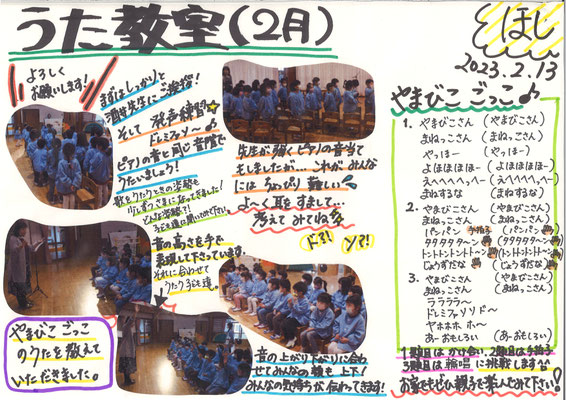 うた教室(2月)
ほし
2023.2.13
よろしく
お願いします!
まずはしっかりと
先生にご挨拶!
そして 発声練習
ドレミファ〜♪
ピアノの音と同じ音階で
うたいましょう!
歌をうたうときの姿勢も
少しずつさまになってきました!
どんな姿勢か
お子さまに聞いてみて下さい。
先生が弾くピアノの音当て
もしましたが… これがみんな
にはちょっぴり難しい
よ〜く耳をすまして…
考えてみてね
ド?!
ソ?!
音の高さを手で
表現して下さっています。
それに合わせて
うたう子ども達。
やまびこ ごっこ
のうたを教えて
いただきました。
音の上がり下がりに合わ
せてみんなの顔も上下!
みんなの気持ちが伝わってきます!
やまびこ ごっこ♪
1. やまびこさん (やまびこさん)
まねっこさん (まねっこさん)
やっほー (やっほー)
よほほほほー (よほほほほー)
えへへへっへー (えへへへっへー)
まねするな (まねするな)
2. やまびこさん (やまびこさん)
まねっこさん (まねっこさん)
パンパン 手拍子 (パンパン)
タタタタタ〜ン (タタタタタ〜ン)
トントントントント〜ン (トントントントント〜ン)
じょうずだな (じょうずだな)
3. やまびこさん (やまびこさん)
まねっこさん (まねっこさん)
ララララ〜
ドレミファソソド〜
ヤホホホ ホ〜
あーおもしろい (あーおもしろい)
1題目は かけ合い、2題目は手拍子
3題目は 輪唱 に挑戦します
お家でもぜひ親子で楽しんでみて下さい!